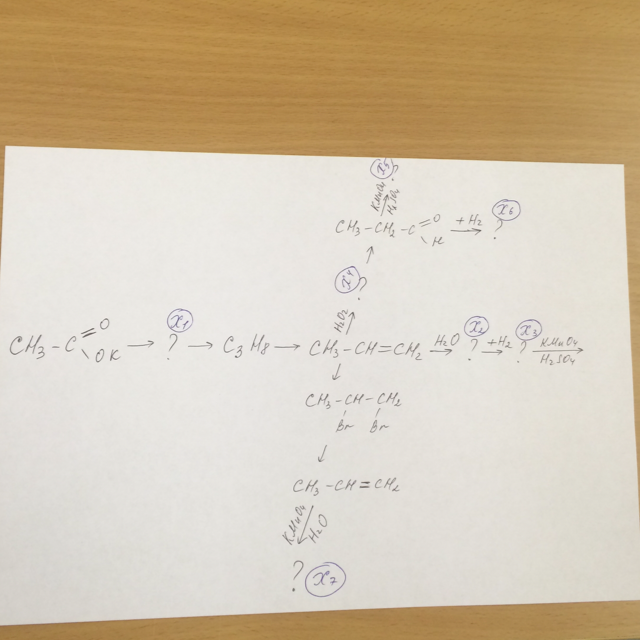 X5
?
KMnO4
H2SO4
CH3-CH2-C=O +H2 → X6
H ?
X4
?
H2O2
CH3-C=O → X1 ? → C3H8 → CH3-CH=CH2 H2O → X2 ? +H2 → X3 ? KMnO4 →
OK H2SO4
CH3-CH-CH2
Br Br
CH3-CH=CH2
KMnO4
H2O
? X7